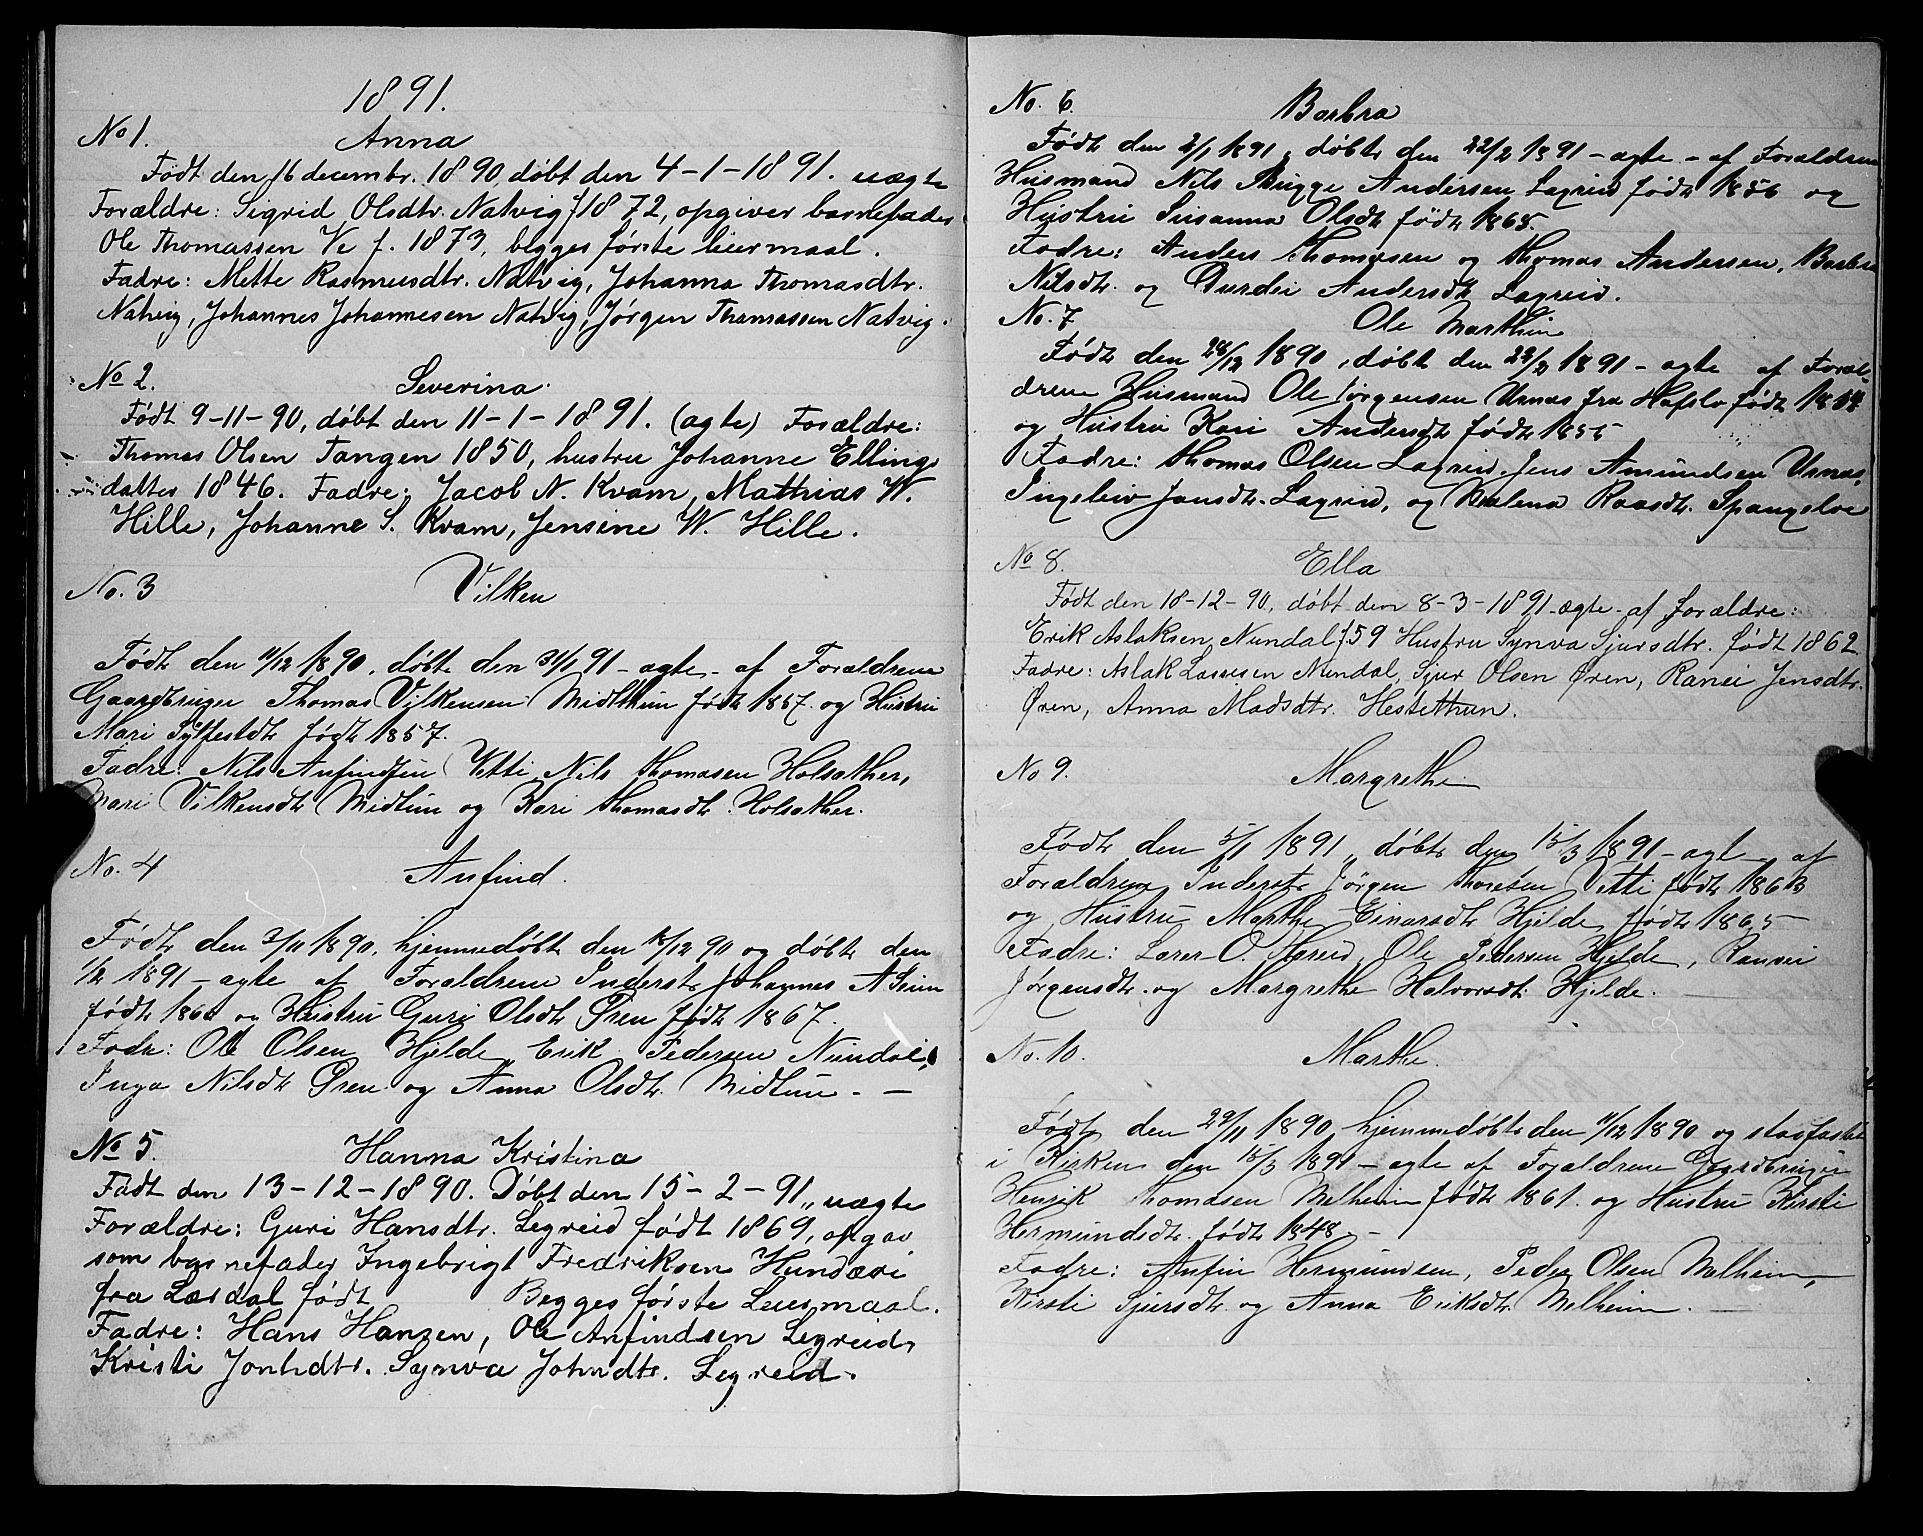 1891.
No 1. Anna
Født den 16 decembr. 1890, døbt den 4-1-1891. uægte
Forældre: Sigrid Olsdtr. Natvig f 1872, opgiver barnefader
Ole Thomassen Ve f. 1873, begges første leiermaal.
Fadre: Mette Rasmusdtr. Natvig, Johanna Thomasdtr.
Natvig, Johannes Johannesen Natvig, Jørgen Thomassen Natvig.
No 2. Severina.
Født 9-11-90, døbt den 11-1-1891. (ægte) Forældre:
Thomas Olsen Tangen 1850, hustru Johanne Ellings
datter 1846. Fadre: Jacob N. Kvam, Mathias W.
Hille, Johanne S. Kvam, Jensine W. Hille.
No. 3 Vilken
Født den 11/12 1890, døbt den 31/1 91 - ægte - af Forældrene
Gaardbruger Thomas Vilkensen Midthun født 1857. og Hustru
Mari Sylfestdtr født 1857.
Fadre: Nils Anfindsen Vetti, Nils Thomasen Holsæther,
Mari Vilkensdtr Midtun og Kari Thomasdtr. Holsæther.
No. 4 Anfind.
Født den 3/11 1890, hjemmedøbt den /12 90 og døbt den
1/2 1891 - ægte af Forældrene Inderst Johannes A Seim
født og Hustru Guri Olsdtr Øren født 1867.
Fadre: Ole Olsen Hjelde, Erik Pedersen Nundal,
Inga Nilsdtr Øren og Anna Olsdtr. Midtun. -
No 5. Hanna Kristina
Født den 13-12-1890. Døbt den 15-2-91, uægte
Forældre: Guri Hansdtr. Legreid født 1869, opgav
som barnefader Ingebrigt Fredriksen Hundæri
fra Lærdal født Begges første Leiermaal.
Fadre: Hans Hanzen, Ole Anfindsen Legreid,
Kristi Jonhdtr. Synva Johndtr. Legreid.
No. 6. Barbra
Født den 2/1 1891, døbt den 22/2 1891 - ægte - af Forældrene
Husmand Nils Brugge Andersen Lægreid født 1856 og
Hustru Susanna Olsdtr født 1865.
Fadre: Anders Thomasen og Thomas Andersen, Barbra
Nilsdtr. og Durdei Andersdtr Lægreid.
No. 7 Ole Marthin
Født den 28/12 1890, døbt den 22/2 1891 - ægte af Foræl-
drene Husmand Ole Jørgensen Urnæs fra Hafslo født
og Hustru Kari Andersdtr født 1855
Fadre: Thomas Olsen Lægreid, Jens Amundsen Urnæs,
Ingeleiv Jensdtr. Lægreid, og Malena Roasdtr. Spangelve
No 8. Ella
Født den 18-12-90, døbt den 8-3-1891 - ægte - af forældre:
Erik Aslaksen Nundal f 59 Hustru Synva Sjursdtr. født 1862
Fadre: Aslak Lassesen Nundal, Sjur Olsen Øren, Ranei Jensdtr.
Øren, Anna Madsdtr. Hestetthun.
No 9. Margrethe
Født den 5/1 1891, døbt den 15/3 1891 - ægte - af
Forældrene Inderst Jørgen Thoresen Vetti født 1863
og Hustru Marthe Einarsdtr Hjelde født 1865
Fadre: Lærer O. Hæreid, Ole Pedersen Hjelde, Ranvei
Jørgensdtr. og Margrethe Halvorsdt. Hjelde. -
No. 10. Marthe.
Født den 29/11 1890, hjemmedøbt den 11/12 1890 og stadfæstet
i Kirken den 15/3 1891 - ægte af Forældrene Gaardbruger
Henrik Thomasen Melheim født 1861. og Hustru Kirsti
Hermundsdtr. født 1848. -
Fadre: Anfin Hermundsen, Peder Olsen Melheim,
Kirsti Sjursdtr og Anna Eriksdtr Melheim. -